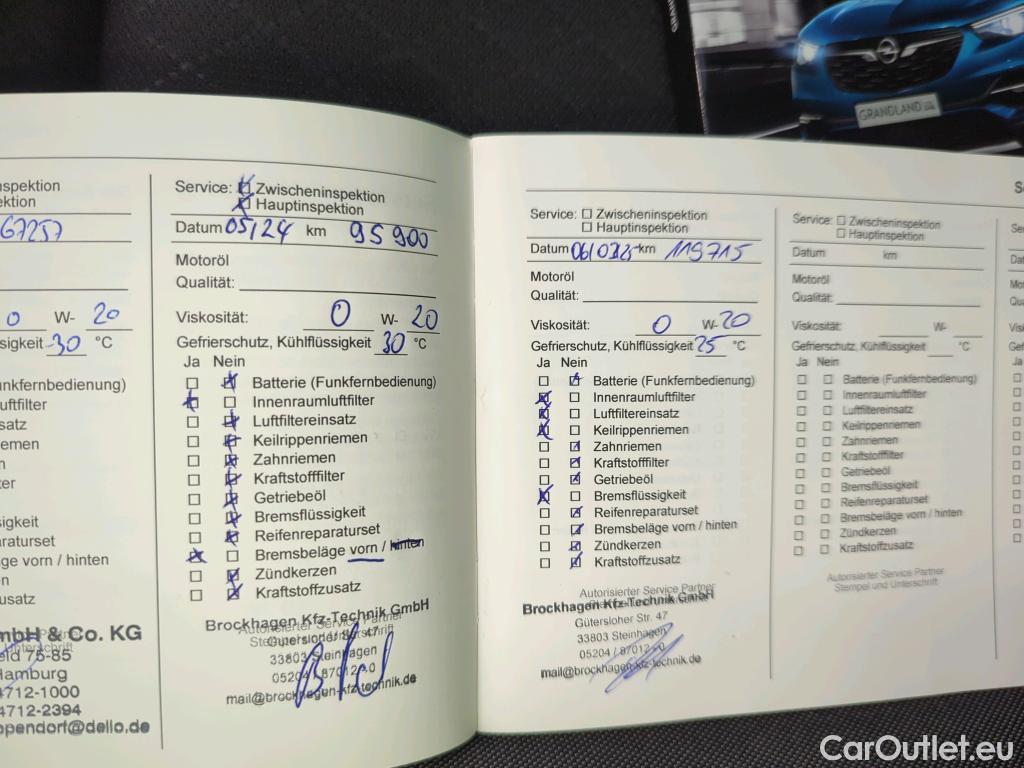 GRANDLAND
nspektion
ektion
67257
0 W- 20
ssigkeit -30 °C
unkfernbedienung)
uftfilter
satz
emen
n
ter
sigkeit
araturset
äge vorn / hinten
en
zusatz
mbH & Co. KG
eld 75-85
Hamburg
4712-1000
4712-2394
ppendorf@dello.de
Service: ☒ Zwischeninspektion
☒ Hauptinspektion
Datum 05/24 km 95900
Motoröl
Qualität:
Viskosität: 0 W- 20
Gefrierschutz, Kühlflüssigkeit 30 °C
Ja Nein
☐ ☒ Batterie (Funkfernbedienung)
☒ ☐ Innenraumluftfilter
☐ ☒ Luftfiltereinsatz
☐ ☒ Keilrippenriemen
☐ ☒ Zahnriemen
☐ ☒ Kraftstofffilter
☐ ☒ Getriebeöl
☐ ☒ Bremsflüssigkeit
☐ ☒ Reifenreparaturset
☒ ☐ Bremsbeläge vorn / hinten
☐ ☒ Zündkerzen
☐ ☒ Kraftstoffzusatz
Brockhagen Kfz-Technik GmbH
Autorisierter Service Partner
Stempel und Unterschrift
Gütersloher Str. 47
33803 Steinhagen
05204 / 87012-0
mail@brockhagen-kfz-technik.de
Service: ☐ Zwischeninspektion
☐ Hauptinspektion
Datum 06/03/25 km 119715
Motoröl
Qualität:
Viskosität: 0 W-20
Gefrierschutz, Kühlflüssigkeit 25 °C
Ja Nein
☐ ☒ Batterie (Funkfernbedienung)
☒ ☐ Innenraumluftfilter
☒ ☐ Luftfiltereinsatz
☒ ☐ Keilrippenriemen
☐ ☒ Zahnriemen
☐ ☒ Kraftstofffilter
☐ ☒ Getriebeöl
☒ ☐ Bremsflüssigkeit
☐ ☒ Reifenreparaturset
☐ ☒ Bremsbeläge vorn / hinten
☐ ☒ Zündkerzen
☐ ☒ Kraftstoffzusatz
Autorisierter Service Partner
Brockhagen Kfz-Technik GmbH
Gütersloher Str. 47
33803 Steinhagen
05204 / 87012-0
mail@brockhagen-kfz-technik.de
Service: ☐ Zwischeninspektion
☐ Hauptinspektion
Datum km
Motoröl
Qualität:
Viskosität: W-
Gefrierschutz, Kühlflüssigkeit °C
Ja Nein
☐ ☐ Batterie (Funkfernbedienung)
☐ ☐ Innenraumluftfilter
☐ ☐ Luftfiltereinsatz
☐ ☐ Keilrippenriemen
☐ ☐ Zahnriemen
☐ ☐ Kraftstofffilter
☐ ☐ Getriebeöl
☐ ☐ Bremsflüssigkeit
☐ ☐ Reifenreparaturset
☐ ☐ Bremsbeläge vorn / hinten
☐ ☐ Zündkerzen
☐ ☐ Kraftstoffzusatz
Autorisierter Service Partner
Stempel und Unterschrift
CarOutlet.eu